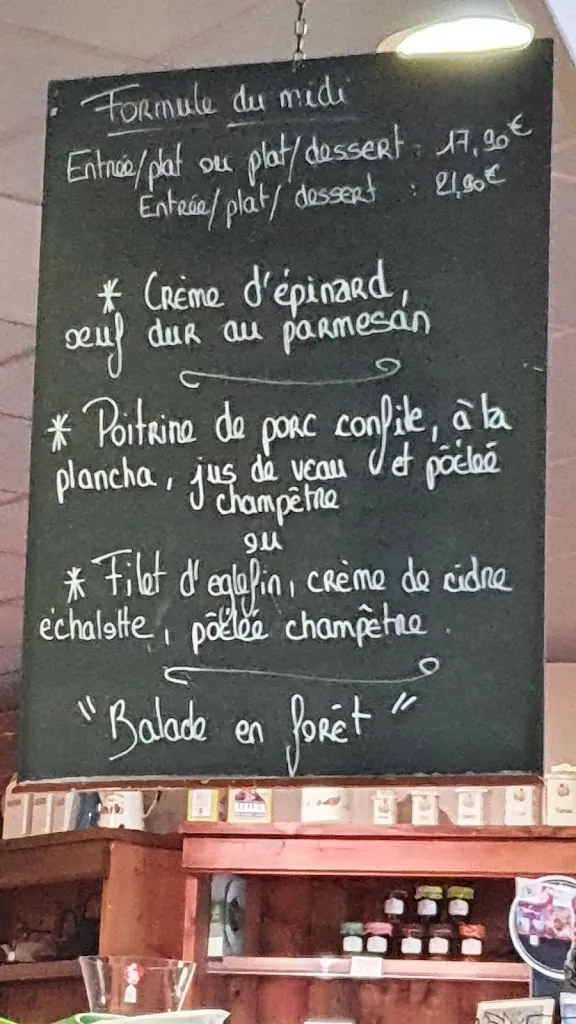 Formule du midi
Entrée/plat ou plat/dessert : 17,90€
Entrée/plat/dessert : 21,90€
* Crème d'épinard,
oeuf dur au parmesan
* Poitrine de porc confite, à la
plancha, jus de veau et pôêleé
champêtre
ou
* Filet d'eglefin, crème de cidre
échalotte, pôêleé champêtre.
"Balade en forêt"